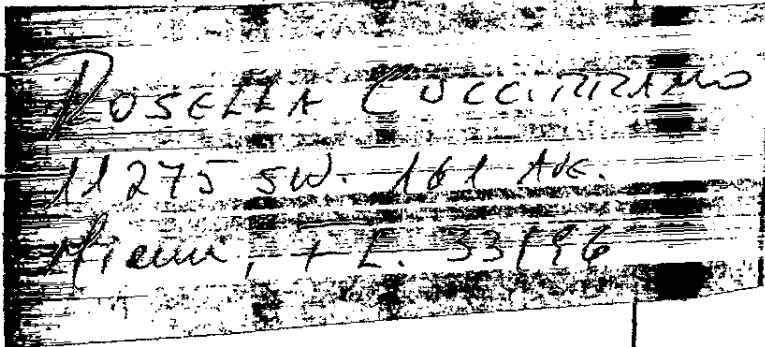 ROSELLA CUCCIRRAMO
11275 SW. 161 AVE.
Miami, FL. 33196